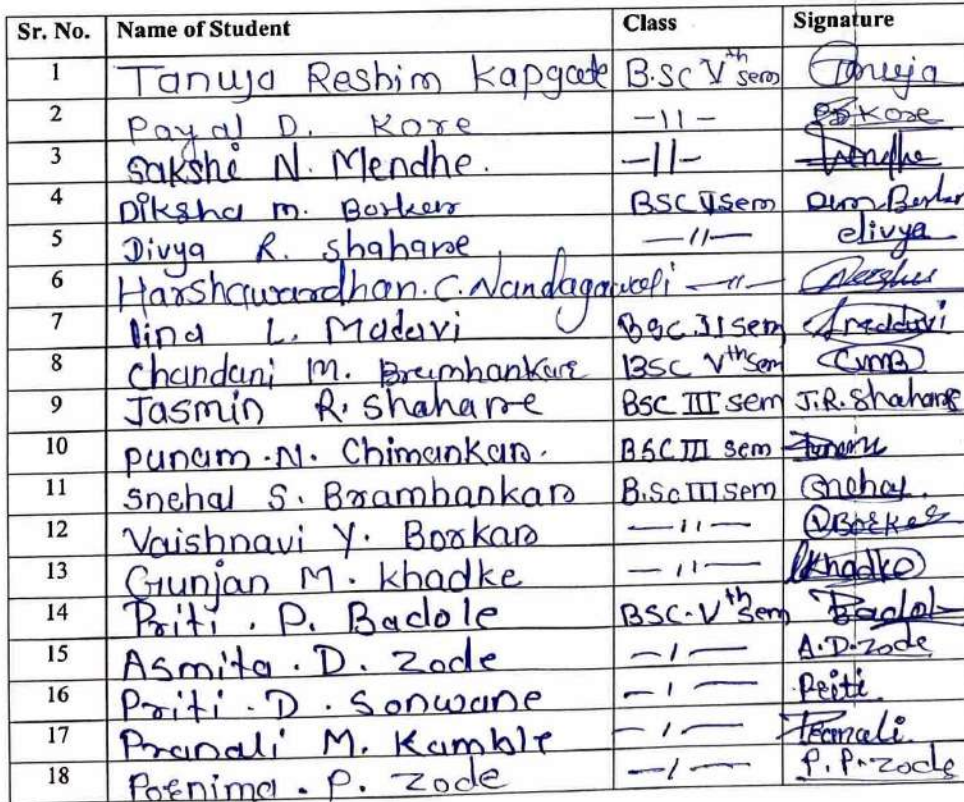 Sr. No. Name of Student Class Signature
1 Tanuja Reshim Kapgate B.SC Vth sem Tanuja
2 Payal D. Kore -11- Kore
3 Sakshi N. Mendhe. -11-
4 Diksha m. Borker BSC II sem
5 Divya R. shahare -11- divya
6 Harshawardhan.C.Nandagawali -11-
7 lina L. Madavi BSC.II sem
8 Chandani M. Bramhankar BSC Vth Sem CMB
9 Jasmin R. Shahare BSC III sem J.R.Shahare
10 punam.N. Chimankar. BSC III sem
11 snehal S. Bramhankar B.Sc III sem Snehal.
12 Vaishnavi Y. Borkar -11- VBorkar
13 Gunjan M. khadke -11- Khadke
14 Priti . P. Badole BSC.Vth sem Badole
15 Asmita . D. Zode -1- A.D.zode
16 Priti . D . Sonwane -1- Priti
17 Pranali M. Kamble -1- Pranali.
18 Poenima . P. Zode -1- P.P.zode